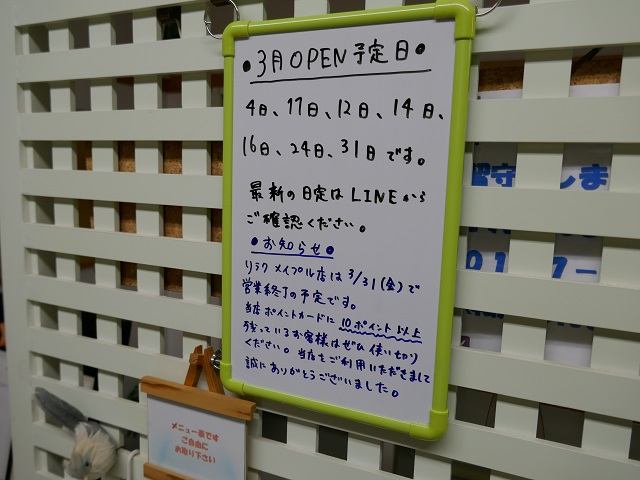 •3月OPEN予定日•
4日、11日、12日、14日、
16日、24日、31日です。
最新の日定はLINEから
ご確認ください。
•お知らせ•
リラク メイプル店は3/31(金)で
営業終了の予定です。
当店ポイントカードに10ポイント以上
残っているお客様はぜひ使い切り
ください。当店をご利用いただきまして
誠にありがとうございました。
メニュー表です
ご自由に
お取り下さい